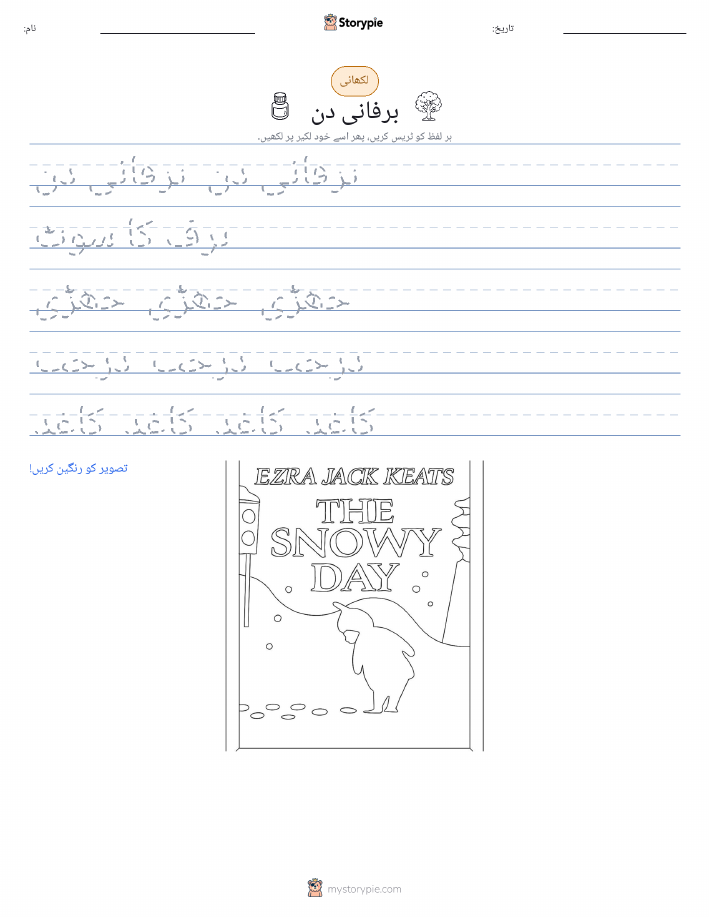 نام:
Storypie
تاریخ:
لکھائی
برفانی دن
ہر لفظ کو ٹریس کریں، پھر اسے خود لکیر پر لکھیں۔
برفانی دن برفانی دن
برف کا سوٹ
چھڑی چھڑی چھڑی
درخت درخت درخت
کاغذ کاغذ کاغذ کاغذ
تصویر کو رنگین کریں!
EZRA JACK KEATS
THE
SNOWY
DAY
mystorypie.com